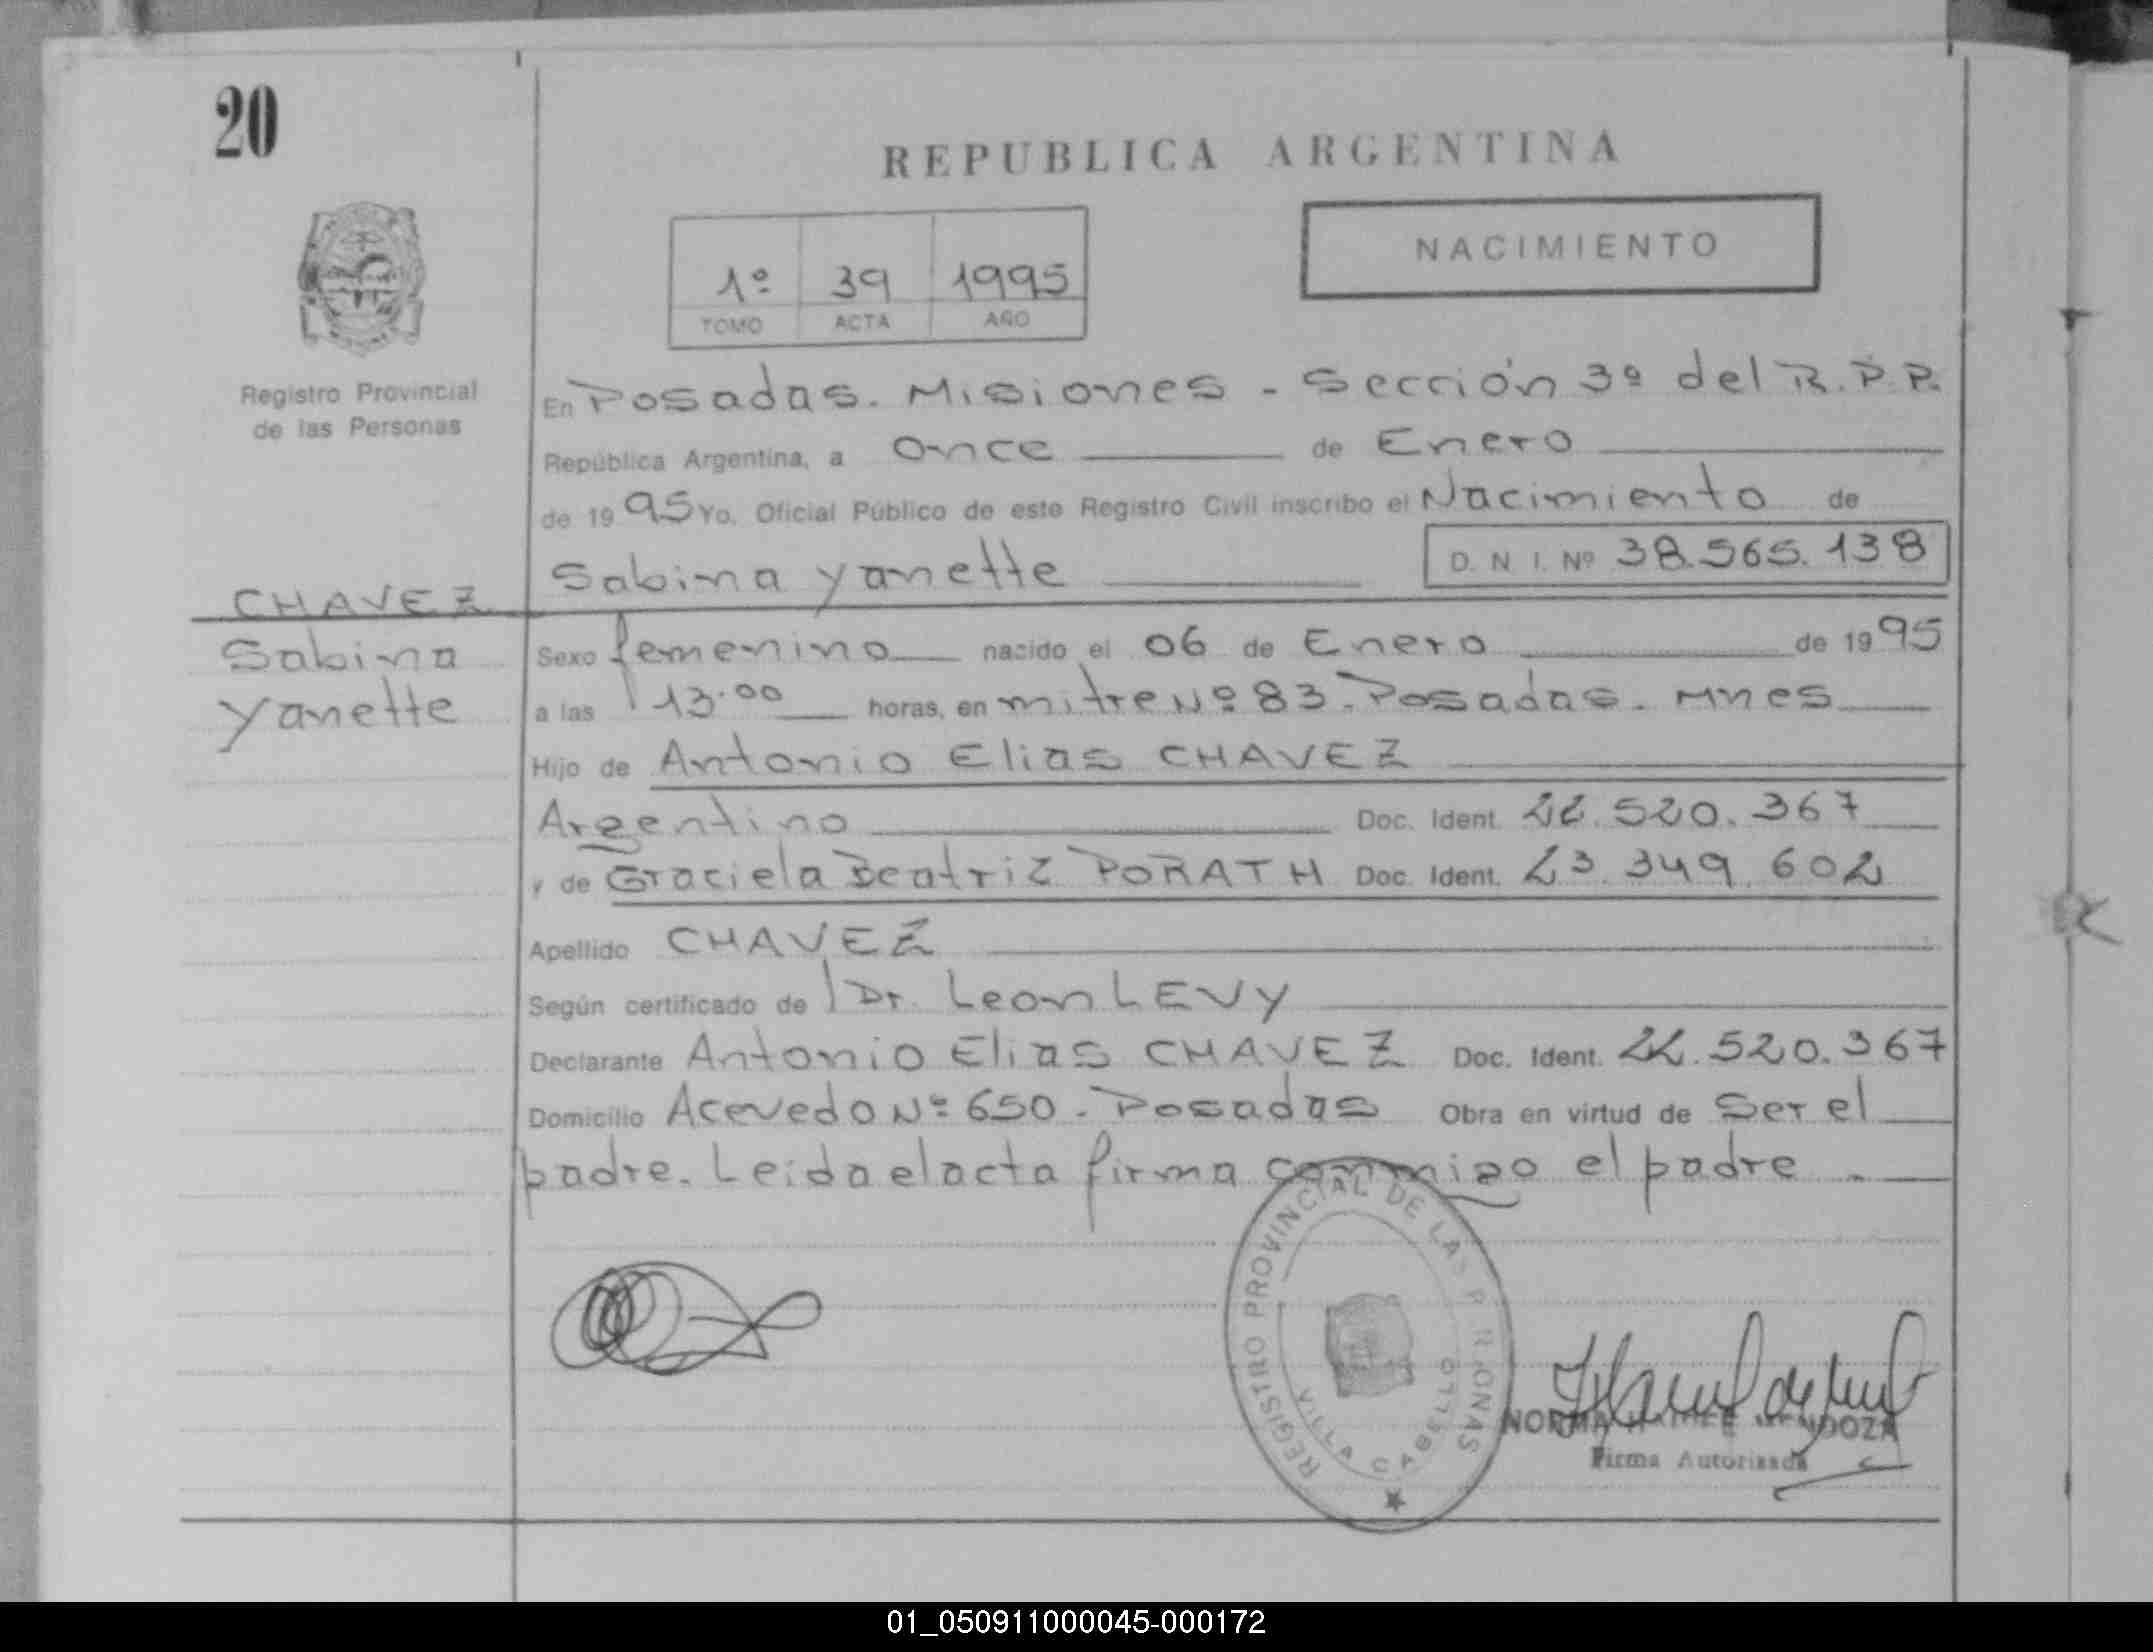 20
REPUBLICA ARGENTINA
NACIMIENTO
1º 39 1995
TOMO ACTA AÑO
Registro Provincial
de las Personas
En Posadas. Misiones - Sección 3º del R.P.P.
República Argentina, a once de Enero
de 1995 Yo, Oficial Público de este Registro Civil inscribo el Nacimiento de
Sabina Yanette D. N. I. Nº 38.565.138
CHAVEZ
Sabina
Yanette
Sexo femenino nacido el 06 de Enero de 1995
a las 13.00 horas, en mitre Nº 83. Posadas. Mnes
Hijo de Antonio Elias CHAVEZ
Argentino Doc. Ident. 22.520.367
y de Graciela Beatriz PORATH Doc. Ident. 23.349.602
Apellido CHAVEZ
Según certificado de Dr. Leon LEVY
Declarante Antonio Elias CHAVEZ Doc. Ident. 22.520.367
Domicilio Acevedo Nº 650. Posadas Obra en virtud de Ser el
padre. Leida el acta firma conmigo el padre.
REGISTRO PROVINCIAL DE LAS
VILLA CABELLO
NORMA MENDOZA
Firma Autorizada
01_050911000045-000172